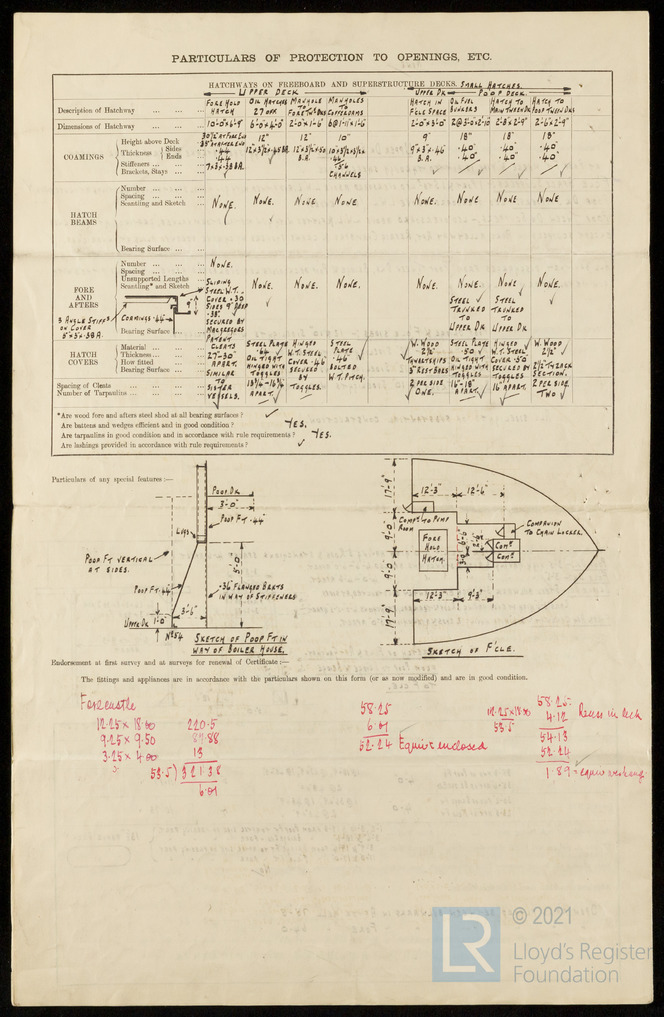 PARTICULARS OF PROTECTION TO OPENINGS, ETC.
HATCHWAYS ON FREEBOARD AND SUPERSTRUCTURE DECKS. SMALL HATCHES.
UPPER DECK UPPER DK POOP DECK.
Description of Hatchway FORE HOLD HATCH OIL HATCHES 27 OFF MANHOLE TO FORE TWN DKS MANHOLES TO COFFERDAMS HATCH IN F'CLE SPACE OIL FUEL BUNKERS HATCH TO MAIN TWEEN DK HATCH TO POOP TWEEN DKS
Dimensions of Hatchway 10'-0"x6'-9" 6'-0"x4'-0" 2'-0"x1'-6" 6@1'-11"x1'-6" 2'-0"x3'-0" 2@3'-0"x2'-10" 2'-8"x2'-9" 2'-6"x2'-9"
COAMINGS
Height above Deck 30½" AT FORE END 35" AFTER END 12" 12" 10" 9" 18" 18" 18"
Thickness Sides .44
Ends .44 .40" .40" .40"
Stiffeners 7x3x.38 BA.
Brackets, Stays CHANNELS
HATCH BEAMS
Number
Spacing
Scantling and Sketch NONE. NONE. NONE. NONE. NONE. NONE. NONE. NONE
Bearing Surface
FORE AND AFTERS
Number NONE.
Spacing
Unsupported Lengths
Scantling* and Sketch NONE. NONE. NONE. NONE. NONE. NONE NONE
SLIDING STEEL W.T. COVER .30 SIDES 9" DEEP .38" SECURED BY MACGREGORS PATENT CLEATS 27"-30" APART. SIMILAR TO SISTER VESSELS.
3 ANGLE STIFFS ON COVER COAMINGS .44 9"
STEEL TRUNKED TO UPPER DK STEEL TRUNKED TO UPPER DK
Bearing Surface
HATCH COVERS
Material
Thickness
How fitted
Bearing Surface
Spacing of Cleats
Number of Tarpaulins
STEEL PLATE .64 OIL TIGHT HINGED WITH TOGGLES APART.
HINGED W.T. STEEL COVER .46 SECURED BY TOGGLES.
STEEL PLATE .46 BOLTED W.T. PITCH.
W. WOOD 2½" 3" REST BARS 2 PER SIDE ONE.
STEEL PLATE .50 OIL TIGHT HINGED WITH TOGGLES 16"-18" APART.
HINGED W.T. STEEL COVER .50 SECURED BY TOGGLES 16" APART.
W. WOOD 2½" SECTION. 2 PER SIDE. TWO
*Are wood fore and afters steel shod at all bearing surfaces?
Are battens and wedges efficient and in good condition? YES.
Are tarpaulins in good condition and in accordance with rule requirements? YES.
Are lashings provided in accordance with rule requirements?
Particulars of any special features:—
POOP DK
3'-0"
POOP FT .44"
LUGS
POOP FT VERTICAL AT SIDES.
5'-0"
POOP FT .44"
.36 FLANGED BKTS IN WAY OF STIFFENERS
3'-6"
1'-0"
UPPER DK
Nº 54
SKETCH OF POOP FT IN WAY OF BOILER HOUSE.
17'-9"
12'-3" 12'-6"
COMPT TO PUMP ROOM
COMPANION TO CHAIN LOCKER.
9'-0"
FORE HOLD HATCH.
6'-0"
COMPT
COMPT
9'-0"
12'-3" 9'-3"
17'-9"
SKETCH OF F'CLE.
Endorsement at first survey and at surveys for renewal of Certificate:—
The fittings and appliances are in accordance with the particulars shown on this form (or as now modified) and are in good condition.
Forecastle
12.25 x 18.00 220.5
9.25 x 9.50 87.88
3.25 x 4.00 13
53.5) 321.38
6.01
58.25
6.01
52.24 Equiv. enclosed
12.25x18.00
53.5
58.25
4.12
54.13
52.24
1.89 =
© 2021
LR
Lloyd's Register
Foundation